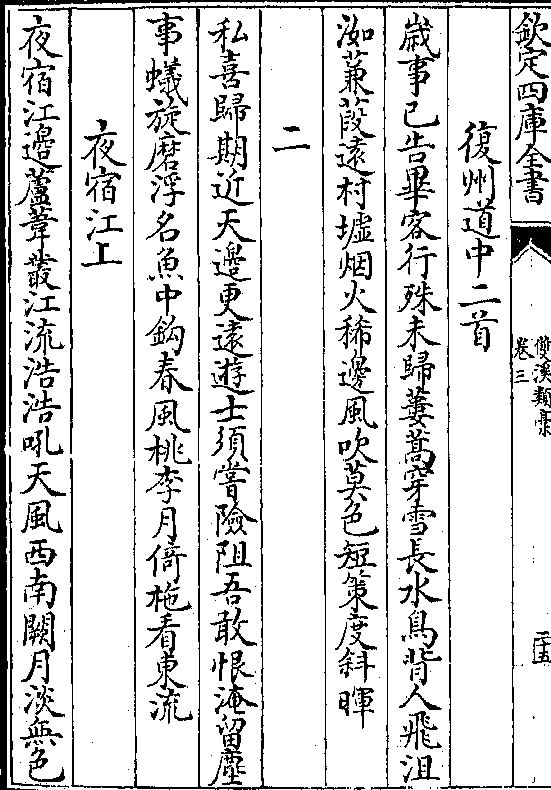 欽定四庫全書
雙溪類稾
卷三
二十五
復州道中二首
歳事已告畢客行殊未歸蔞蒿穿雪長水鳥背人飛沮
洳蒹葭逺村墟烟火稀邊風吹莫色短策度斜暉
二
私喜歸期近天邉更逺遊士須嘗險阻吾敢恨淹留塵
事蟻旋磨浮名魚中鈎春風桃李月倚柂看東流
夜宿江上
夜宿江邉蘆葦叢江流浩浩吼天風西南闕月淡無色